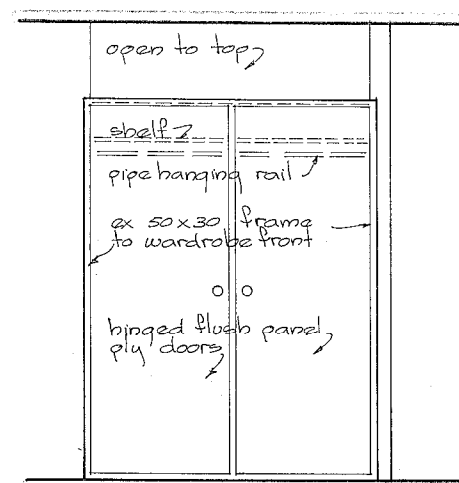 open to top
shelf
pipe hanging rail
ex 50x30 frame
to wardrobe front
hinged flush panel
ply doors